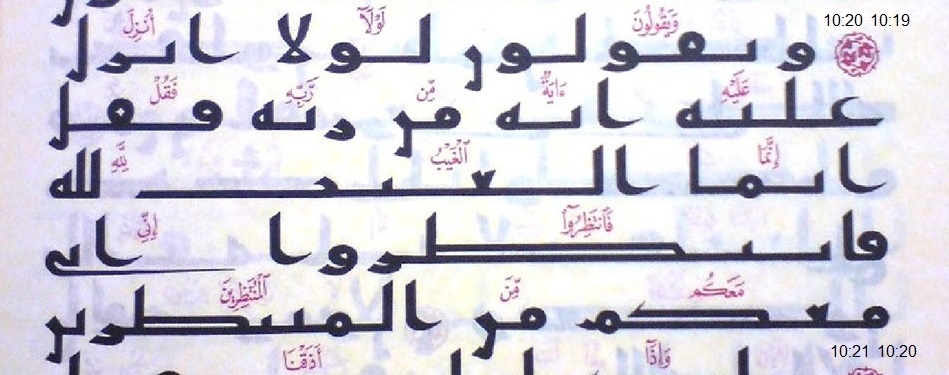 10:20 10:19
وَيَقُولُونَ لَوْلَآ أُنزِلَ
ويقولون لولا انزل
عَلَيْهِ ءَايَةٌ مِّن رَّبِّهِۦ فَقُلْ
عليه ايه من ربه فقل
إِنَّمَا ٱلْغَيْبُ لِلَّهِ
انما الغيب لله
فَٱنتَظِرُوٓا۟ إِنِّى
فانتظروا انى
مَعَكُم مِّنَ ٱلْمُنتَظِرِينَ
معكم من المنتظرين
10:21 10:20
وَإِذَآ أَذَقْنَا